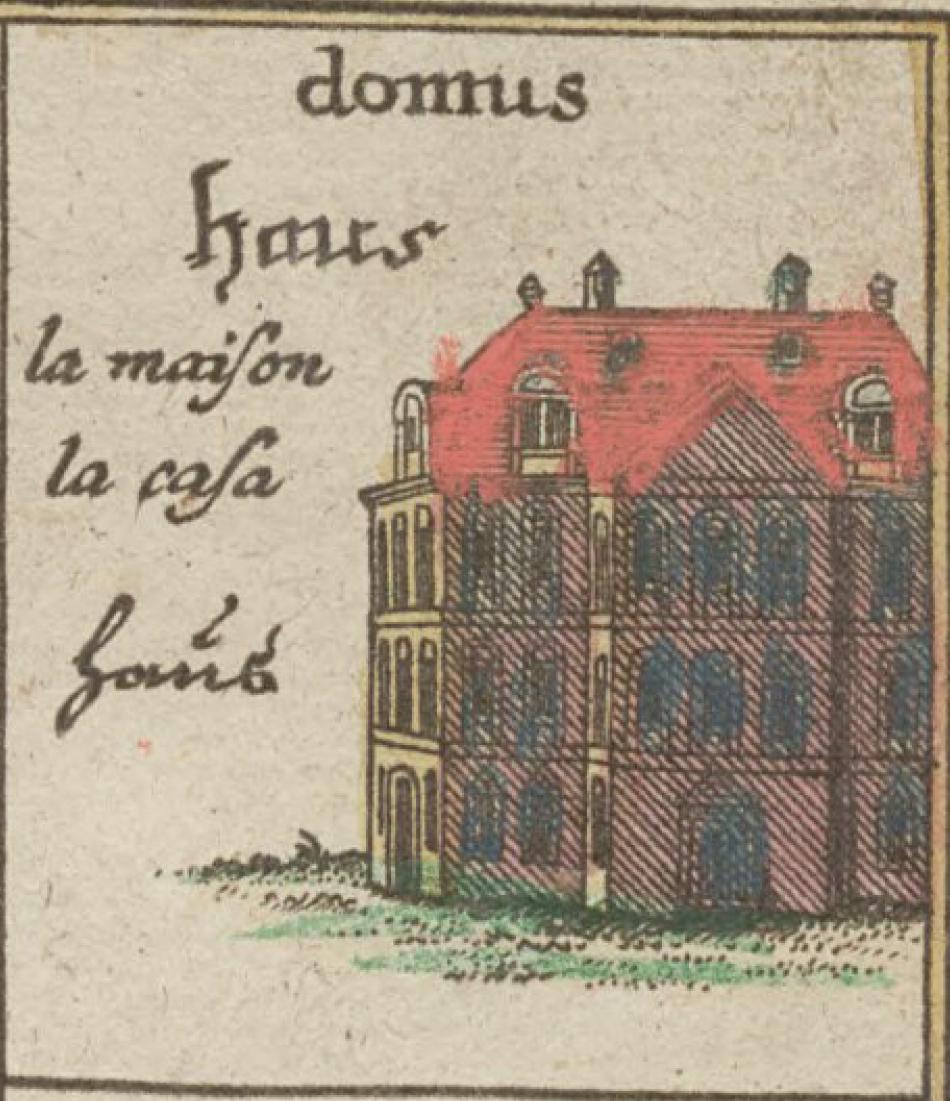 domus
haus
la maiſon
la caſa
haus